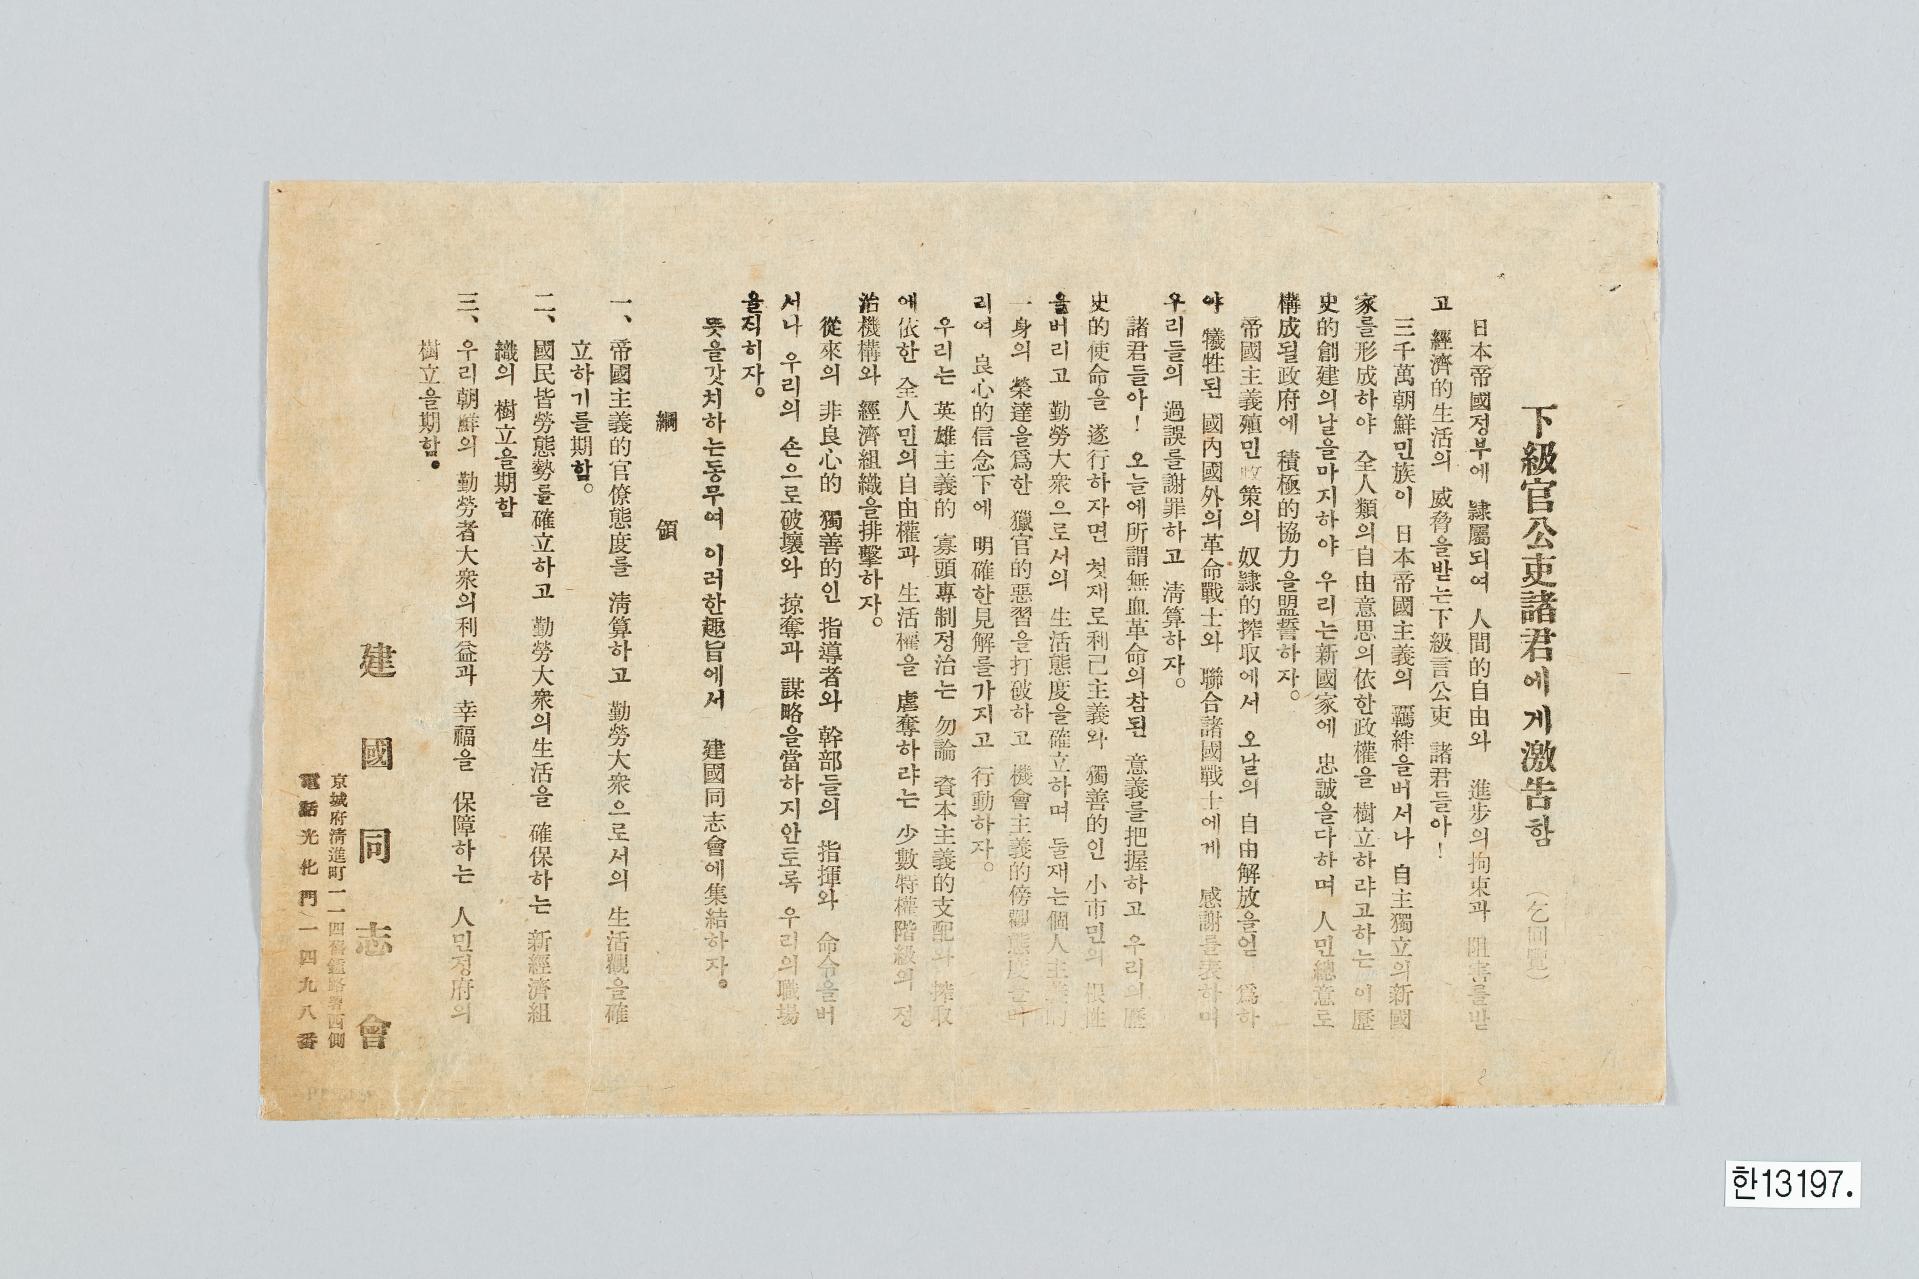 下級官公吏諸君에게激告함 (乞回覽)
日本帝國정부에 隷屬되여 人間的自由와 進步의拘束과 阻害를받
고 經濟的生活의 威脅을받는下級言公吏 諸君들아!
三千萬朝鮮민族이 日本帝國主義의 羈絆을버서나 自主獨立의新國
家를形成하야 全人類의自由意思의依한政權을 樹立하랴고하는 이歷
史的創建의날을마지하야 우리는新國家에 忠誠을다하며 人민總意로
構成될政府에 積極的協力을盟誓하자。
帝國主義殖민政策의 奴隷的搾取에서 오날의 自由解放을얻 爲하
야 犧牲된 國內國外의革命戰士와 聯合諸國戰士에게 感謝를表하며
우리들의 過誤를謝罪하고 淸算하자。
諸君들아! 오늘에所謂無血革命의참된 意義를把握하고 우리의歷
史的使命을 遂行하자면 첫재로利己主義와 獨善的인 小市민의 根性
을버리고 勤勞大衆으로서의 生活態度을確立하며 둘재는個人主義的
一身의 榮達을爲한 獵官的惡習을打破하고 機會主義的傍觀態度를버
리여 良心的信念下에 明確한見解를가지고 行動하자。
우리는 英雄主義的 寡頭專制정治는 勿論 資本主義的支配와 搾取
에依한 全人민의自由權과 生活權을 虐奪하랴는 少數特權階級의 정
治機構와 經濟組織을排擊하자。
從來의 非良心的 獨善的인 指導者와 幹部들의 指揮와 命令을버
서나 우리의 손으로破壞와 掠奪과 謀略을當하지안토록 우리의職場
을직히자。
뜻을갓치하는동무여 이러한趣旨에서 建國同志會에集結하자。
綱 領
一、帝國主義的官僚態度를 淸算하고 勤勞大衆으로서의 生活觀을確
立하기를期함。
二、國民皆勞態勢를確立하고 勤勞大衆의生活을 確保하는 新經濟組
織의 樹立을期함
三、우리朝鮮의 勤勞者大衆의利益과 幸福을 保障하는 人민정府의
樹立을期함。
建國同志會
京城府淸進町一一四番鐘路署西側
電話光化門一四九八番
한13197.